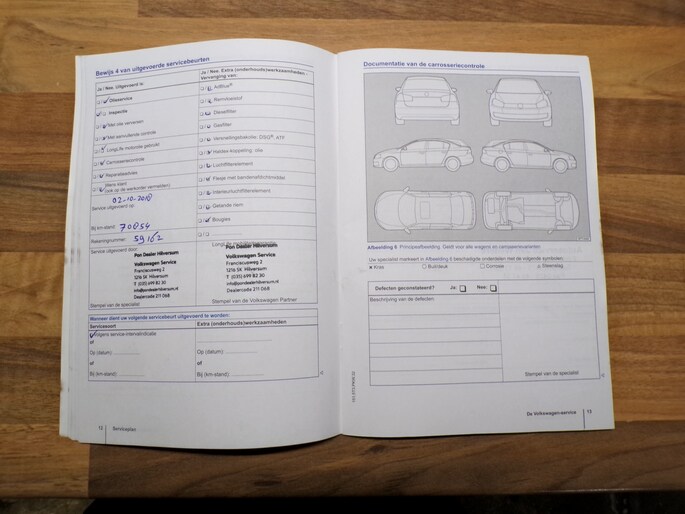 Bewijs 4 van uitgevoerde servicebeurten
Ja / Nee, Uitgevoerd is:
Olieservice
Inspectie
Met olie verversen
Met aanvullende controle
LongLife motorolie gebruikt
Carrosseriecontrole
Reparatieadvies
Wens klant
(ook op de werkorder vermelden)
Service uitgevoerd op:
02-10-2018
Bij km-stand: 70854
Rekeningnummer: 59162
Service uitgevoerd door:
Pon Dealer Hilversum
Volkswagen Service
Franciscusweg 2
1216 SK Hilversum
T (035) 699 82 30
info@pondealerhilversum.nl
Dealercode 211 068
Stempel van de specialist
Ja / Nee, Extra (onderhouds)werkzaamheden -
Vervanging van:
AdBlue®
Remvloeistof
Dieselfilter
Gasfilter
Versnellingsbakolie: DSG®, ATF
Haldex-koppeling: olie
Luchtfilterelement
Flesje met bandenafdichtmiddel
Interieurluchtfilterelement
Getande riem
Bougies
Pon Dealer Hilversum
Volkswagen Service
Franciscusweg 2
1216 SK Hilversum
T (035) 699 82 30
info@pondealerhilversum.nl
Dealercode 211 068
Stempel van de Volkswagen Partner
Wanneer dient uw volgende servicebeurt uitgevoerd te worden:
Servicesoort
Extra (onderhouds)werkzaamheden
Volgens service-intervalindicatie
of
Op (datum):
Op (datum):
of
of
Bij (km-stand):
Bij (km-stand):
12
Serviceplan
Documentatie van de carrosseriecontrole
Afbeelding 6 Principeafbeelding. Geldt voor alle wagens en carrosserievarianten
Uw specialist markeert in Afbeelding 6 beschadigde onderdelen met de volgende symbolen:
Kras
Bult/deuk
Corrosie
Steenslag
Defecten geconstateerd?
Ja:
Nee:
Beschrijving van de defecten:
Stempel van de specialist
De Volkswagen-service
13